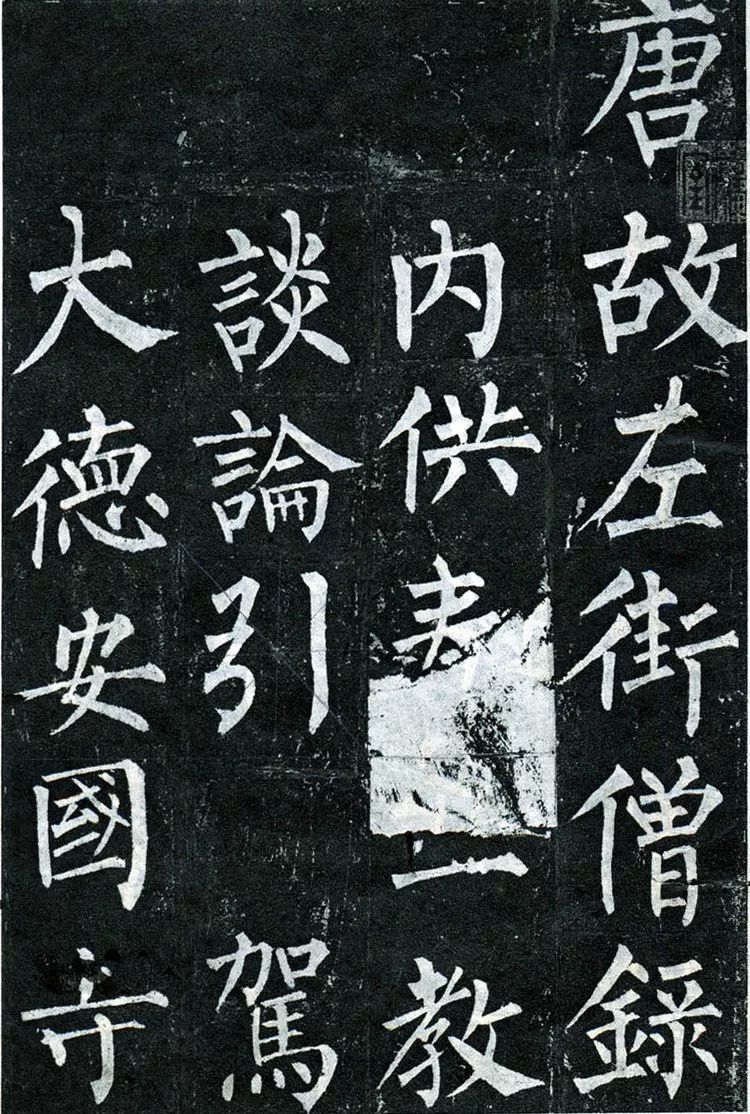 唐故左街僧錄
内供教
談論引駕
大德安國寺